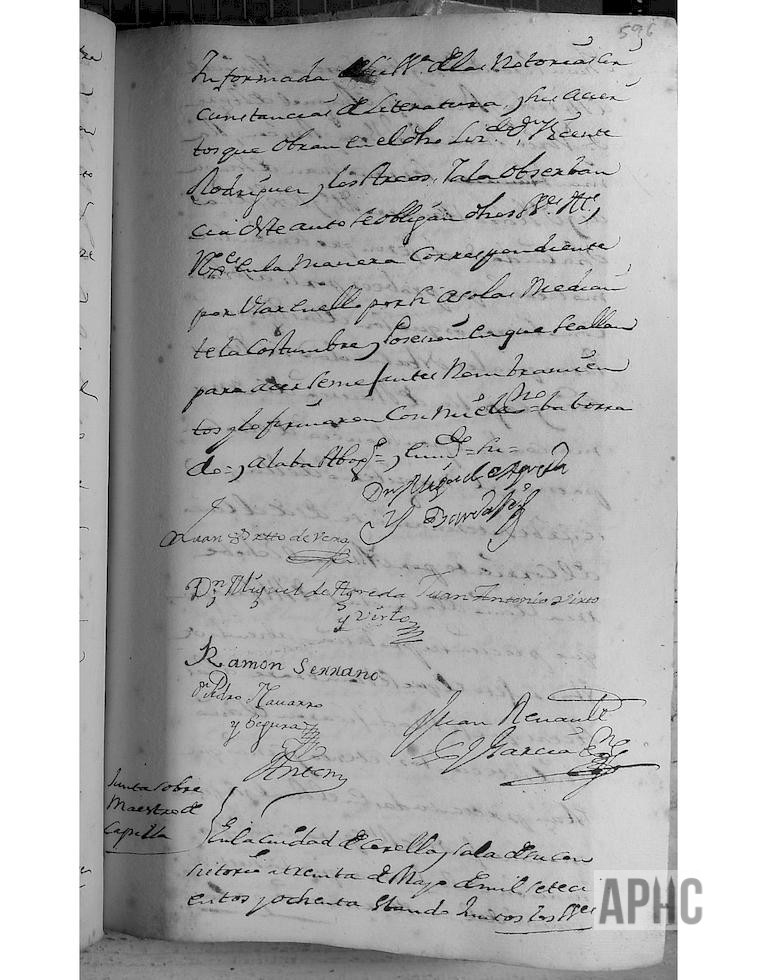 596
Informada de las Notorias Cir
cunstancias de Literatura, y sus acier
tos que obran en el dho Liz.do Dn Vicente
Rodriguez y los Arcos, y a la obserban
cia de este auto se obligan dhos SS.es
en la Manera Correspondiente
por Vaxcuello por si a solas Median
te la Costumbre y Posesion en que se allan
para acer semejantes Nombramien
tos y lo firmaron Con mi el = ba borra
do = y Alaba = su =
Dn Miguel de Agreda
y
Juan de Vera
Dn Miguel de Agreda Juan Antonio Virto
y Virto
Ramon Serrano
Dn Pedro Navarro
y Segura
Juan Renault
y Garcia
Antem
Junta sobre
Maestro de
Capilla
En la ciudad de Corella y sala de su con
sistorio a treinta de Mayo de mil seteci
entos y ochenta Estando Juntos los SS.es
APHC